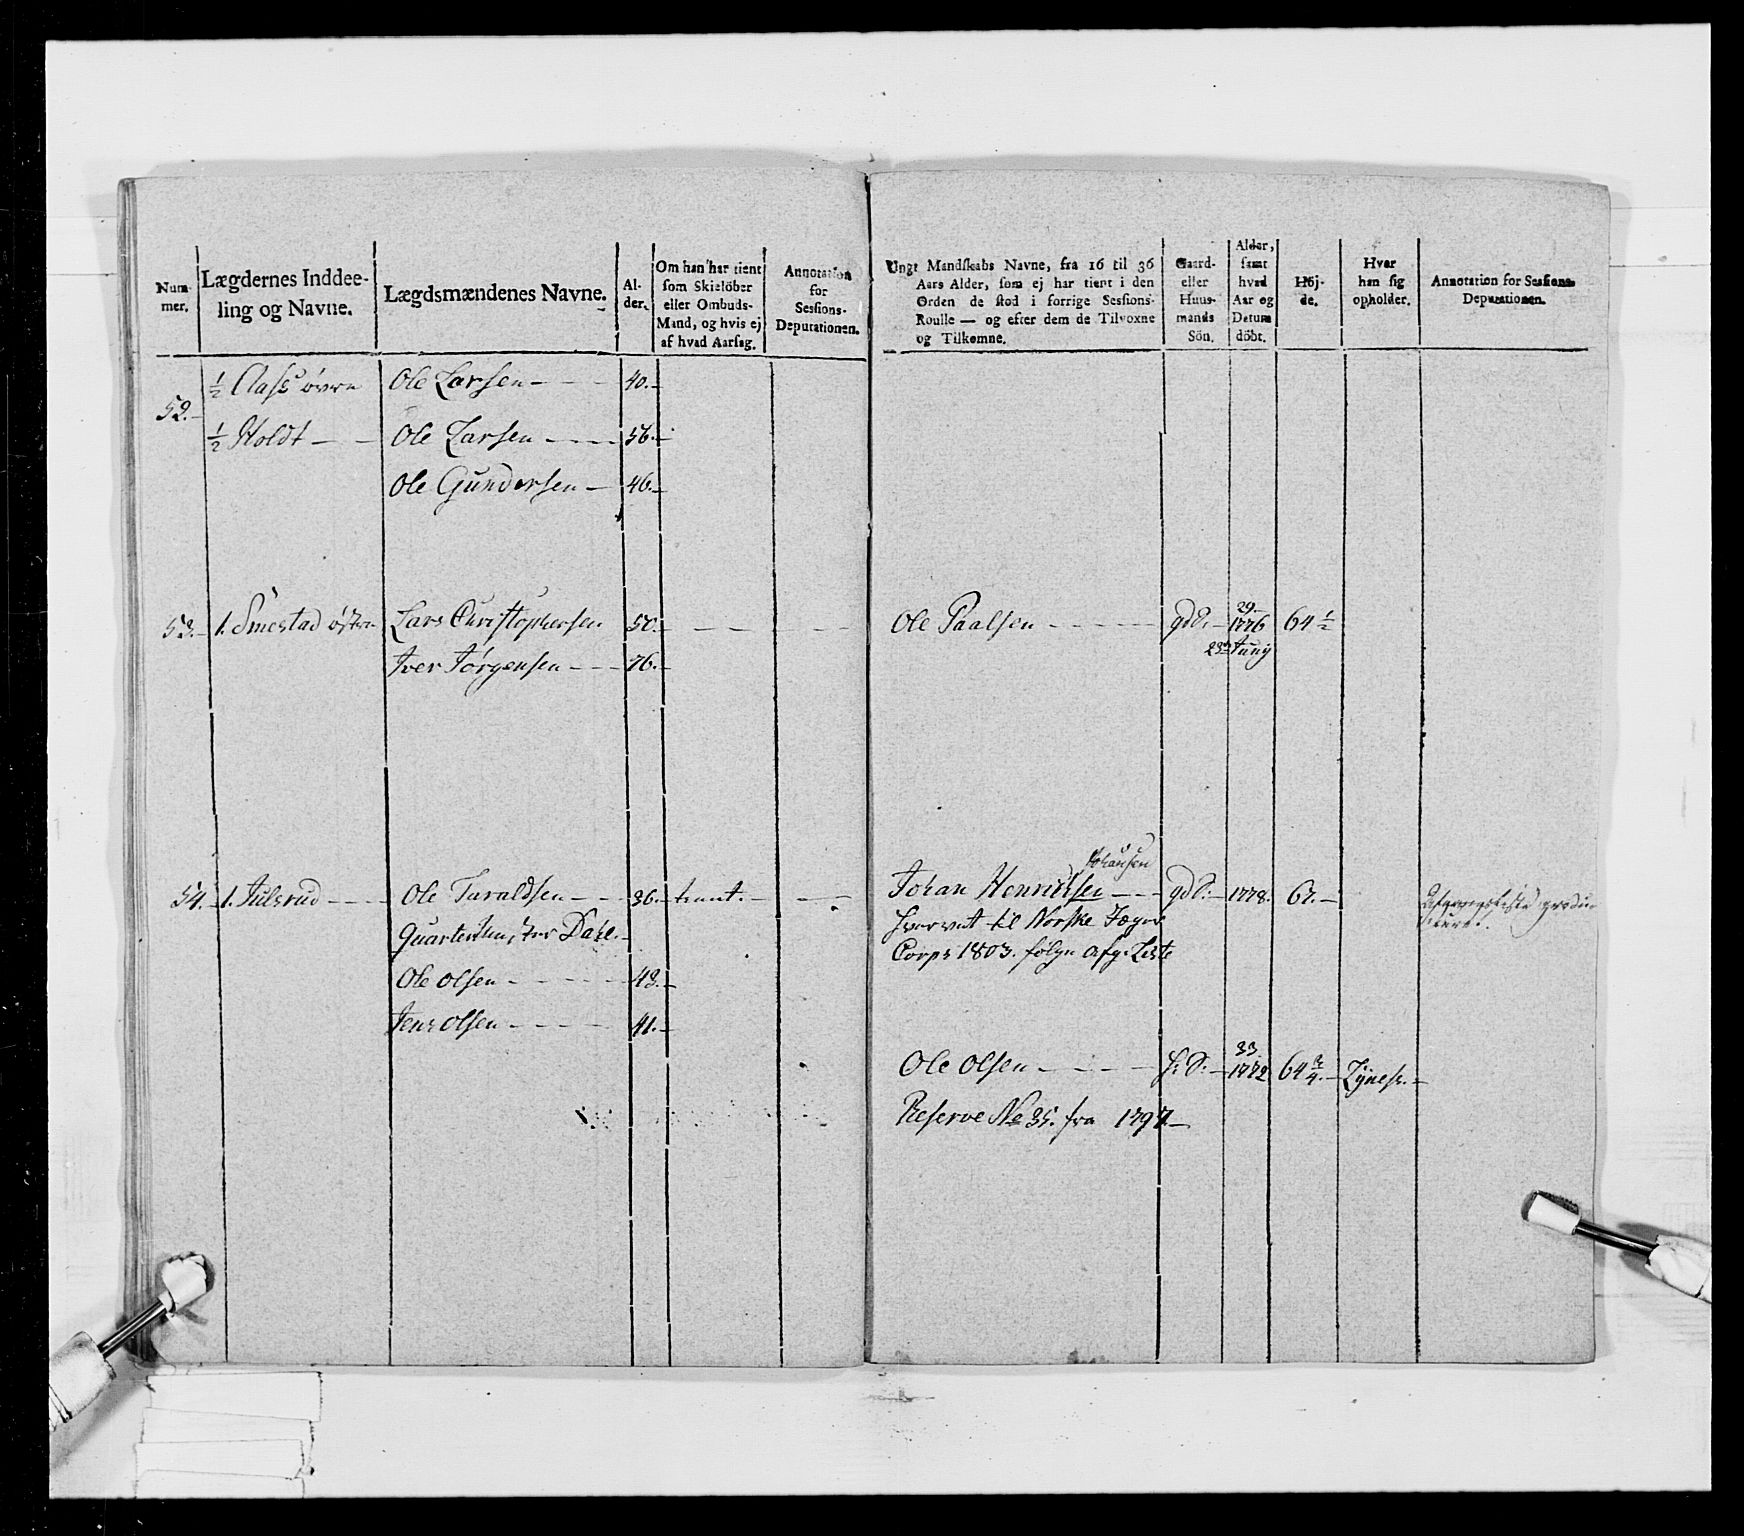 Num-
mer.
Lægdernes Inddee-
ling og Navne.
Lægdsmændenes Navne.
Al-
der.
Om han har tient
som Skielöber
eller Ombuds-
Mand, og hvis ej
af hvad Aarsag.
Annotation
for
Sessions-
Deputationen.
Ungt Mandskabs Navne, fra 16 til 36
Aars Alder, som ej har tient i den
Orden de stod i forrige Sessions-
Roulle — og efter dem de Tilvoxne
og Tilkomne.
Gaard-
eller
Huus-
mands
Sön.
Alder,
samt
hvad
Aar og
Datum
döbt.
Höj-
de.
Hvar
han sig
opholder.
Annotation for Sessions-
Deputationen.
52. ½ Aass øvre Ole Larsen — 40.
½ Holdt — Ole Larsen — 56.
Ole Gundersen — 46.
53. 1. Smestad østre Lars Christophersen 50. — — — Ole Paalsen — gd S. 29 1776 64 ½
23de Junij
Iver Jörgensen — 76.
Johansen
54. 1. Julsrud — Ole Taraldsen — 36. tient. — Johan Henriksen — gd S. 1778. 67. — Afgangsliste produ-
ceret.
Quarteer, Dahl. — hvervet til Norske Jæger
Corps 1803. følge Afg: Liste
Ole Olsen — 43.
Jens Olsen — 41.
Ole Olsen — h: S. 33 1772 64 ¾
Reserve No 35. fra 1797. —